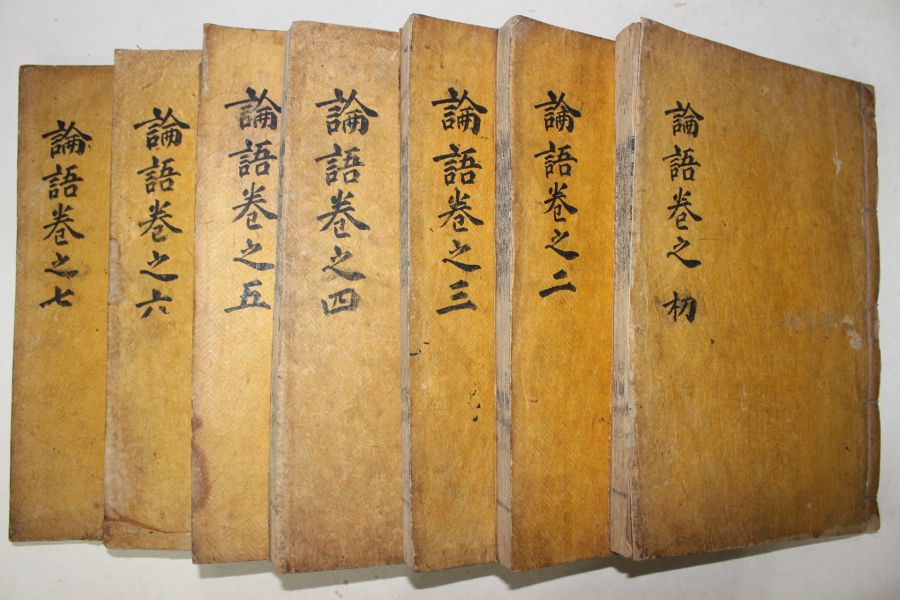 論語卷之 初
論語卷之二
論語卷之三
論語卷之四
論語卷之五
論語卷之六
論語卷之七